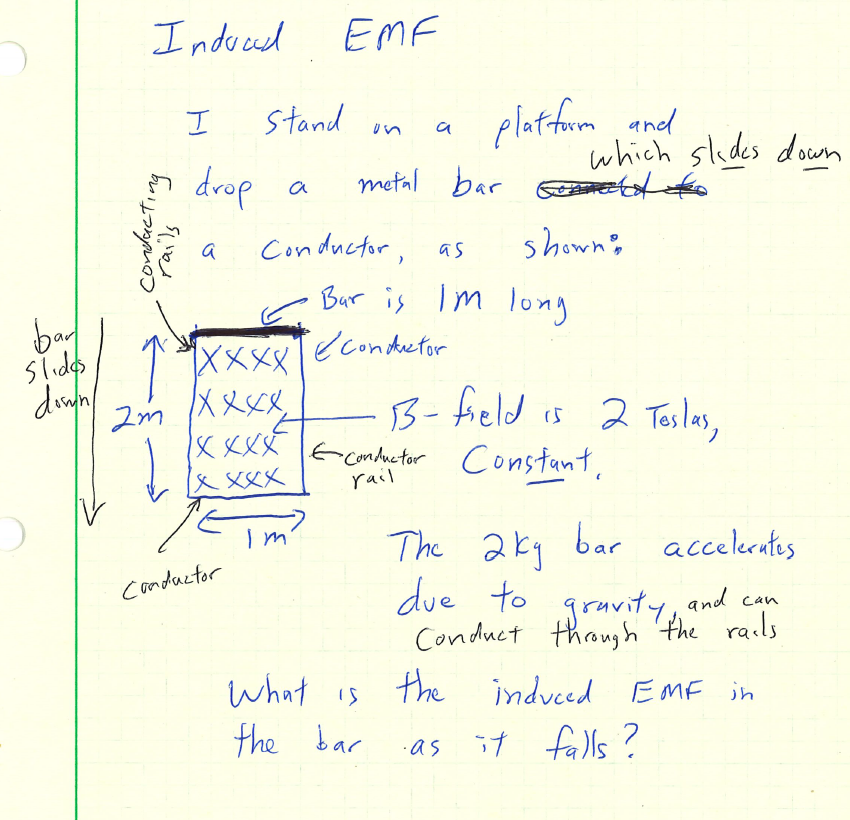 Induced EMF
I stand on a platform and
which slides down
drop a metal bar
a conductor, as shown:
conducting
rails
Bar is 1m long
bar
slides
down
XXXX
Conductor
XXXX
2m
B-field is 2 Teslas,
XXXX
Conductor
rail
Constant.
XXXX
1m
Conductor
The 2kg bar accelerates
due to gravity, and can
Conduct through the rails
What is the induced EMF in
the bar as it falls?